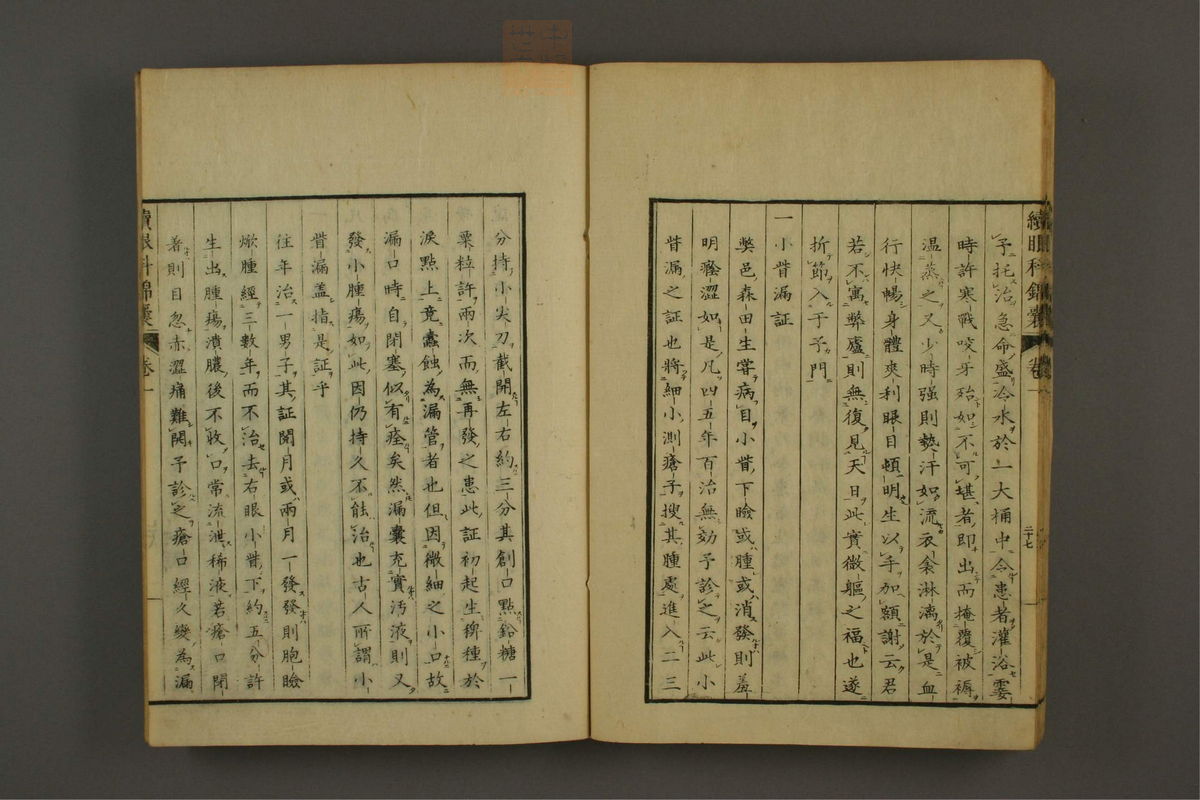 續眼科錦囊 卷一 二十七
予托治急命盛冷水於一大桶中令患者灌浴霎
時許寒戰咬牙殆如不可堪者即出而掩覆被褥
温蒸之又少時强則熱汗如流衣衾淋漓於是血
行快暢身體爽利眼目頓明生以手加額謝云君
若不寓弊廬則無復見天日此實微軀之福也遂
折節入于予門
一小眥漏証
弊邑森田生嘗病目小眥下瞼或腫或消發則羞
明癃澀如是凡四五年百治無効予診之云此小
眥漏之証也將細小測瘡子搜其腫處進入二三
分持小尖刀截開左右約三分其創口點鉛糖一
粟粒許兩次而無再發之患此証初起生稗種於
淚點上竟蠹蝕為漏管者也但因微細之小口故
漏口時自閉塞似有痊矣然漏囊充實汚液則又
發小腫瘍如此因仍持久不能治也古人所謂小
眥漏盖指是証乎
往年治一男子其証閒月或兩月一發發則胞瞼
焮腫經三數年而不治去右眼小眥下約五分許
生出腫瘍潰膿後不收口常流泄稀液若瘡口閉
著則目忽赤澀痛難開予診之瘡口經久變為漏
續眼科錦囊 卷一